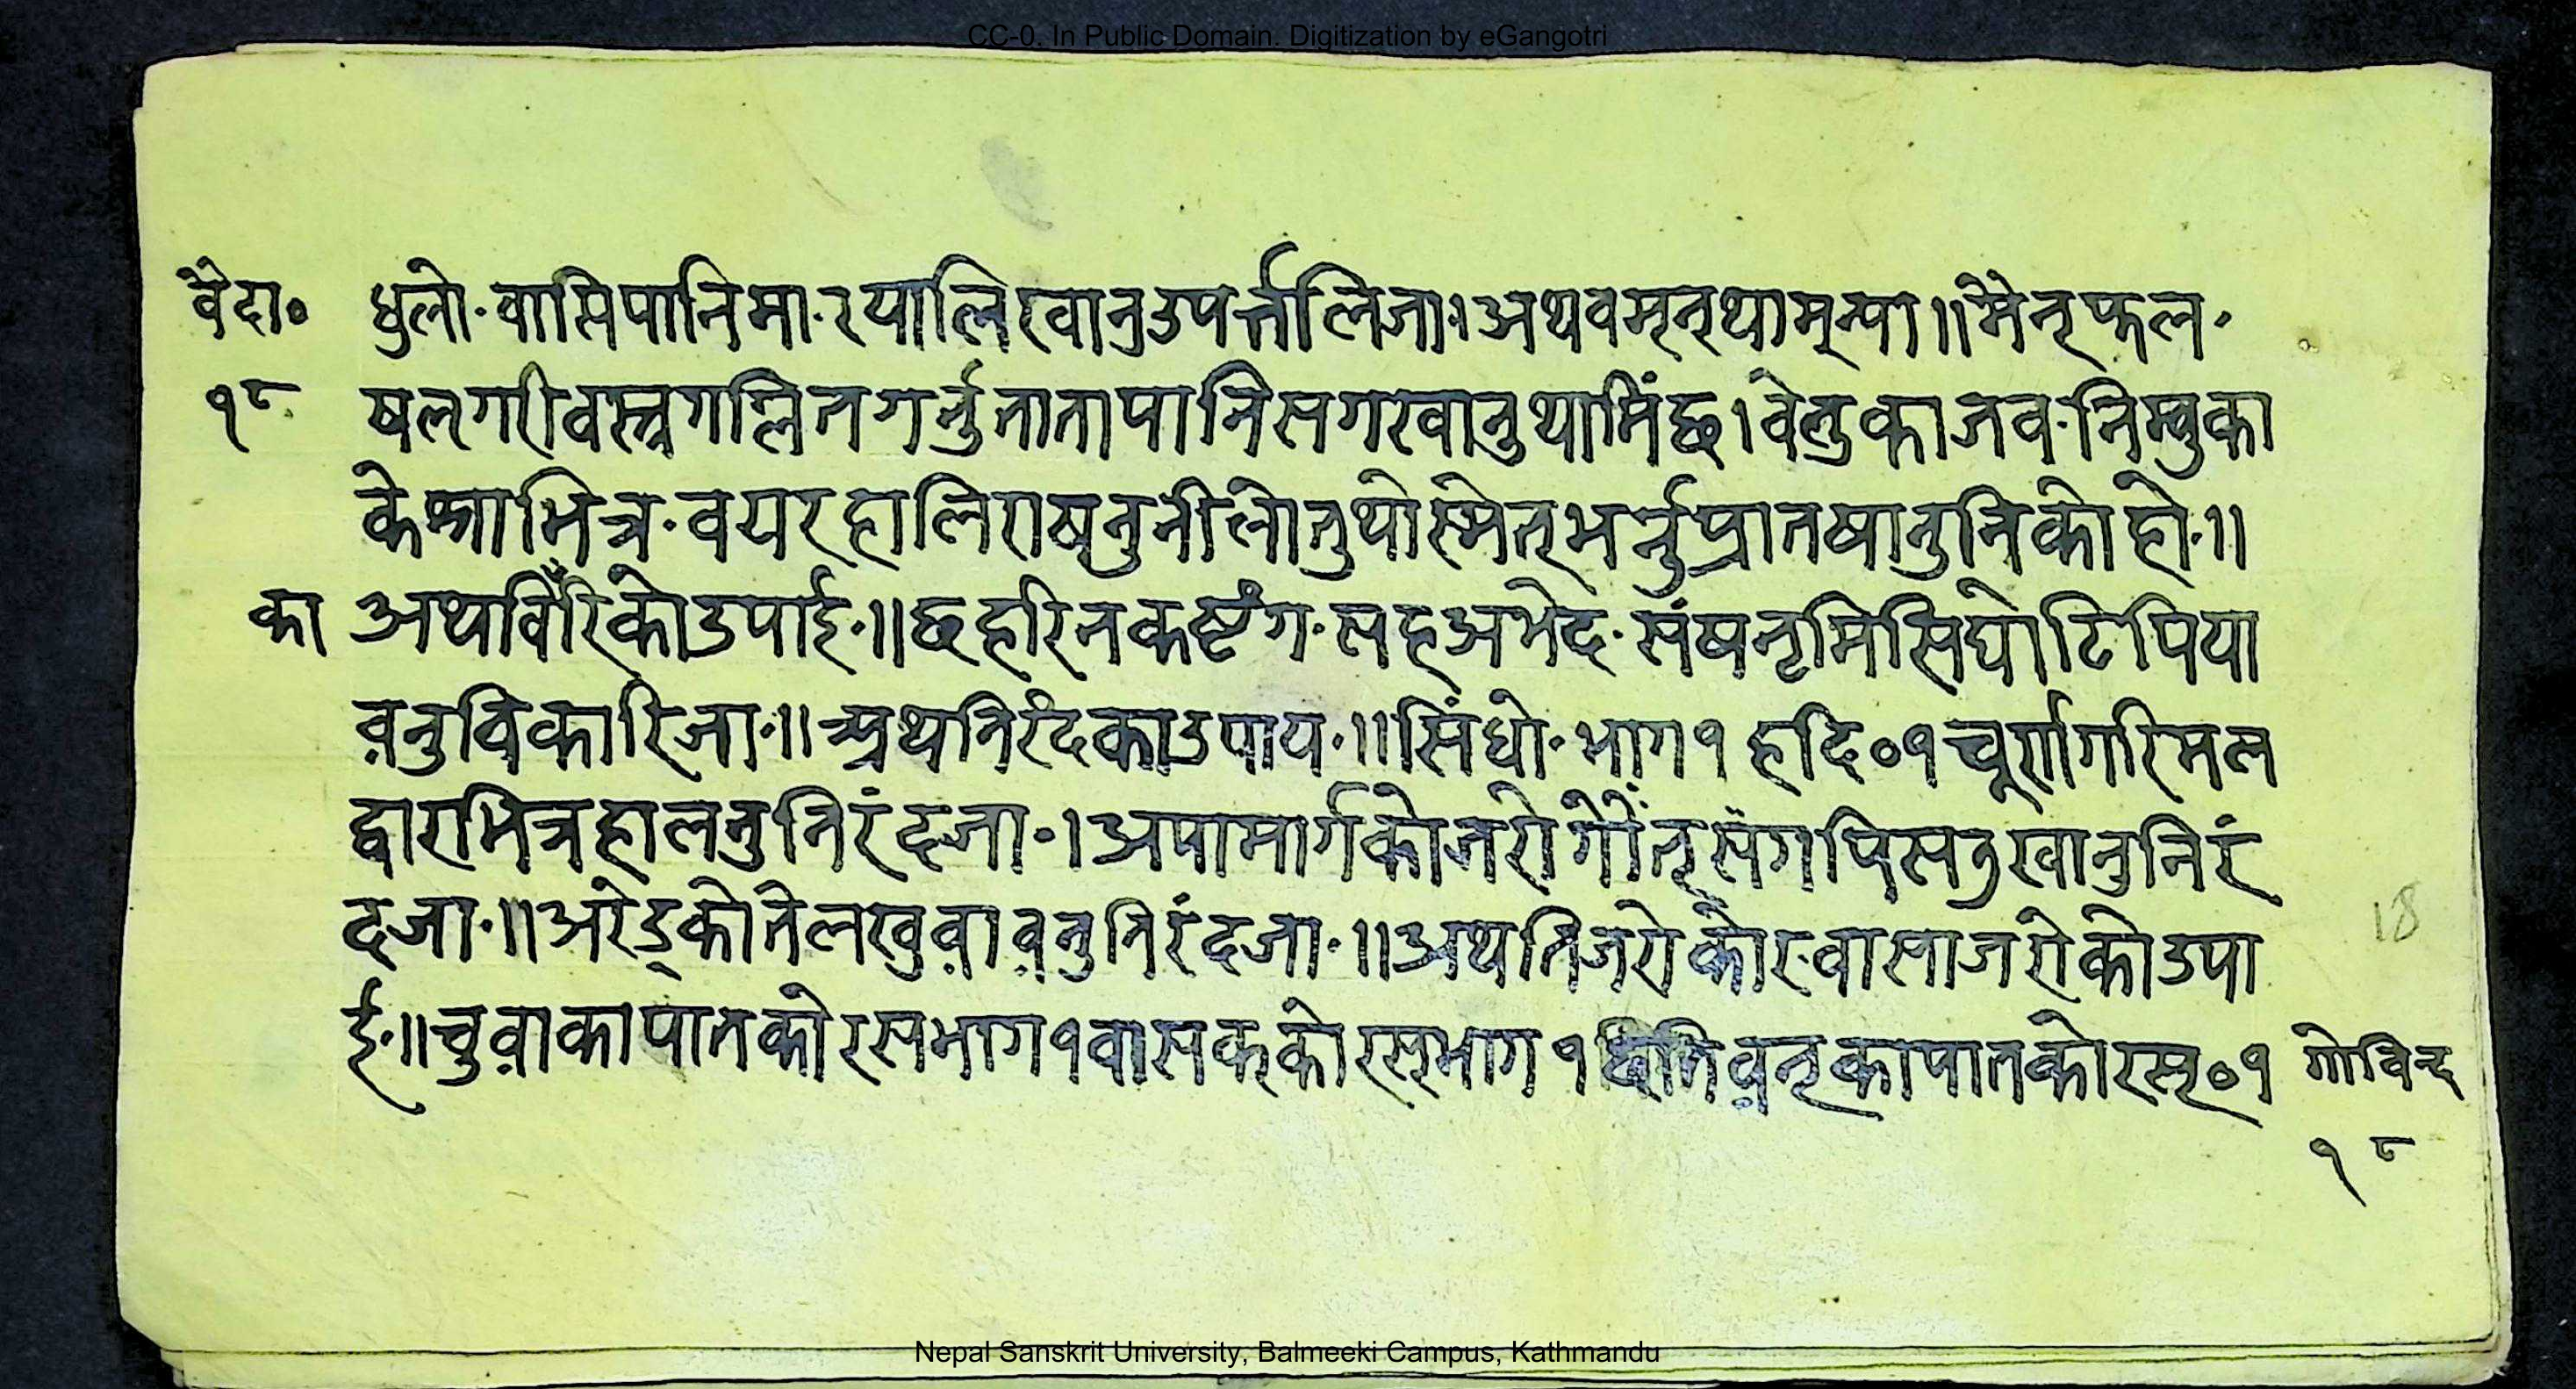 CC-0. In Public Domain. Digitization by eGangotri
वैदा० धुलो· वासिपानिमा· रयालि खानु उपर्त्तालिजा। अथ वमन् थाम्न्या॥ मैनफल·
१८ षलगरी वस्त्रगलित गर्नु ताता पानि सग खानु थामिंछ। वेलुका जव· निम्बुका
केश्रा भित्र· वयर हालि राषनु नीलो तुथो स्मेत् भर्नु प्रात षानु निको हो·॥
का अथ विरिको उपाई·॥ छहरि नकष्टंग· सहअभेद· संष नृमिसि घोटि पिया
वनु विकारि जा·॥ अथ निरंदका उपाय·॥ सिंधो· भाग १ हदि०१ चूर्ण गरि मल
द्वार भित्र हालनु निरंदजा·। अपामार्गको जरो गोंत् संग पिस्नु खानु निरं
दजा·॥ अरेड्को तेल खुवावनु निरंदजा·॥ अथ तिजरोको स्वासा जरोको उपा
ई·॥ चुवाका पातको रस भाग १ वासकको रस् भाग १ का पातको रस्०१ गोविन्द
१८
18
Nepal Sanskrit University, Balmeeki Campus, Kathmandu